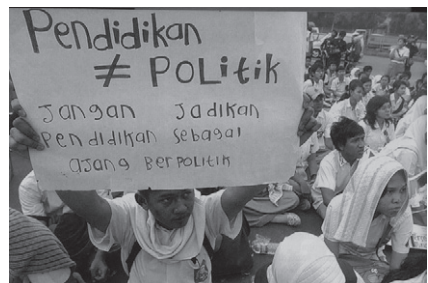 Pendidikan
≠ POLitik
Jangan Jadikan
Pendidikan sebagai
ajang Berpolitik